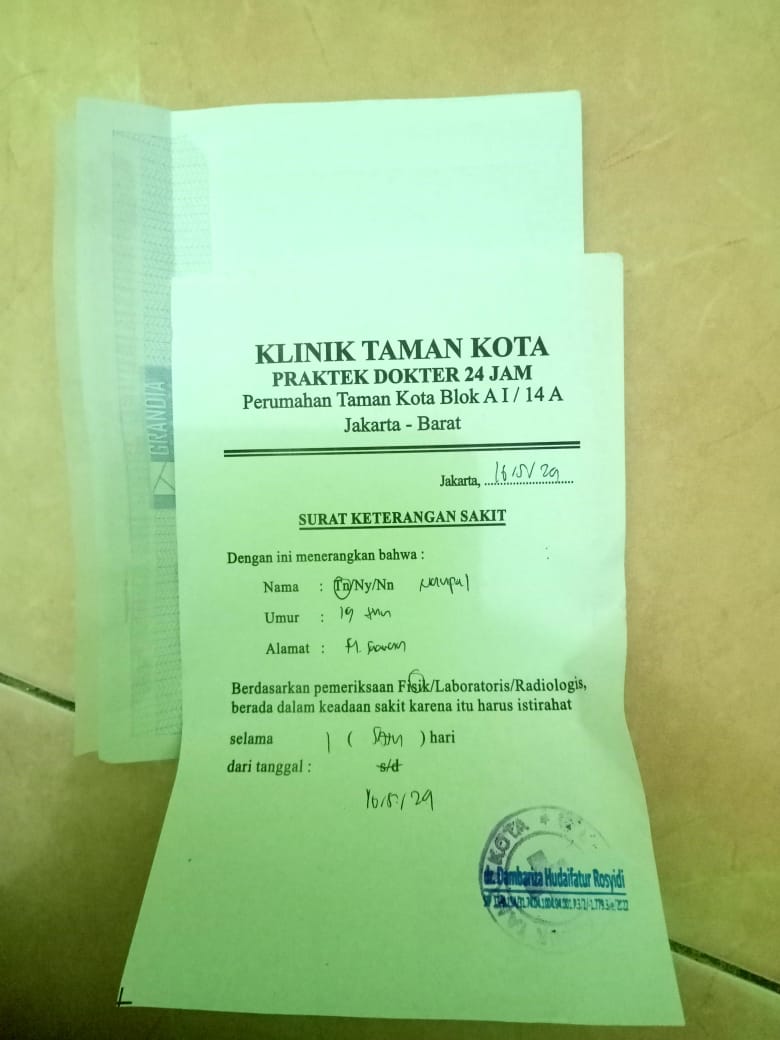 KLINIK TAMAN KOTA
PRAKTEK DOKTER 24 JAM
Perumahan Taman Kota Blok A I / 14 A
Jakarta - Barat
Jakarta, 16/5/24
SURAT KETERANGAN SAKIT
Dengan ini menerangkan bahwa :
Nama : Tn/Ny/Nn
Umur : 19
Alamat :
Berdasarkan pemeriksaan Fisik/Laboratoris/Radiologis,
berada dalam keadaan sakit karena itu harus istirahat
selama 1 ( satu ) hari
dari tanggal : s/d
16/5/24
KOTA
dr. Dambariza Hudaifatur Rosyidi
TAMAN
GRANDIA